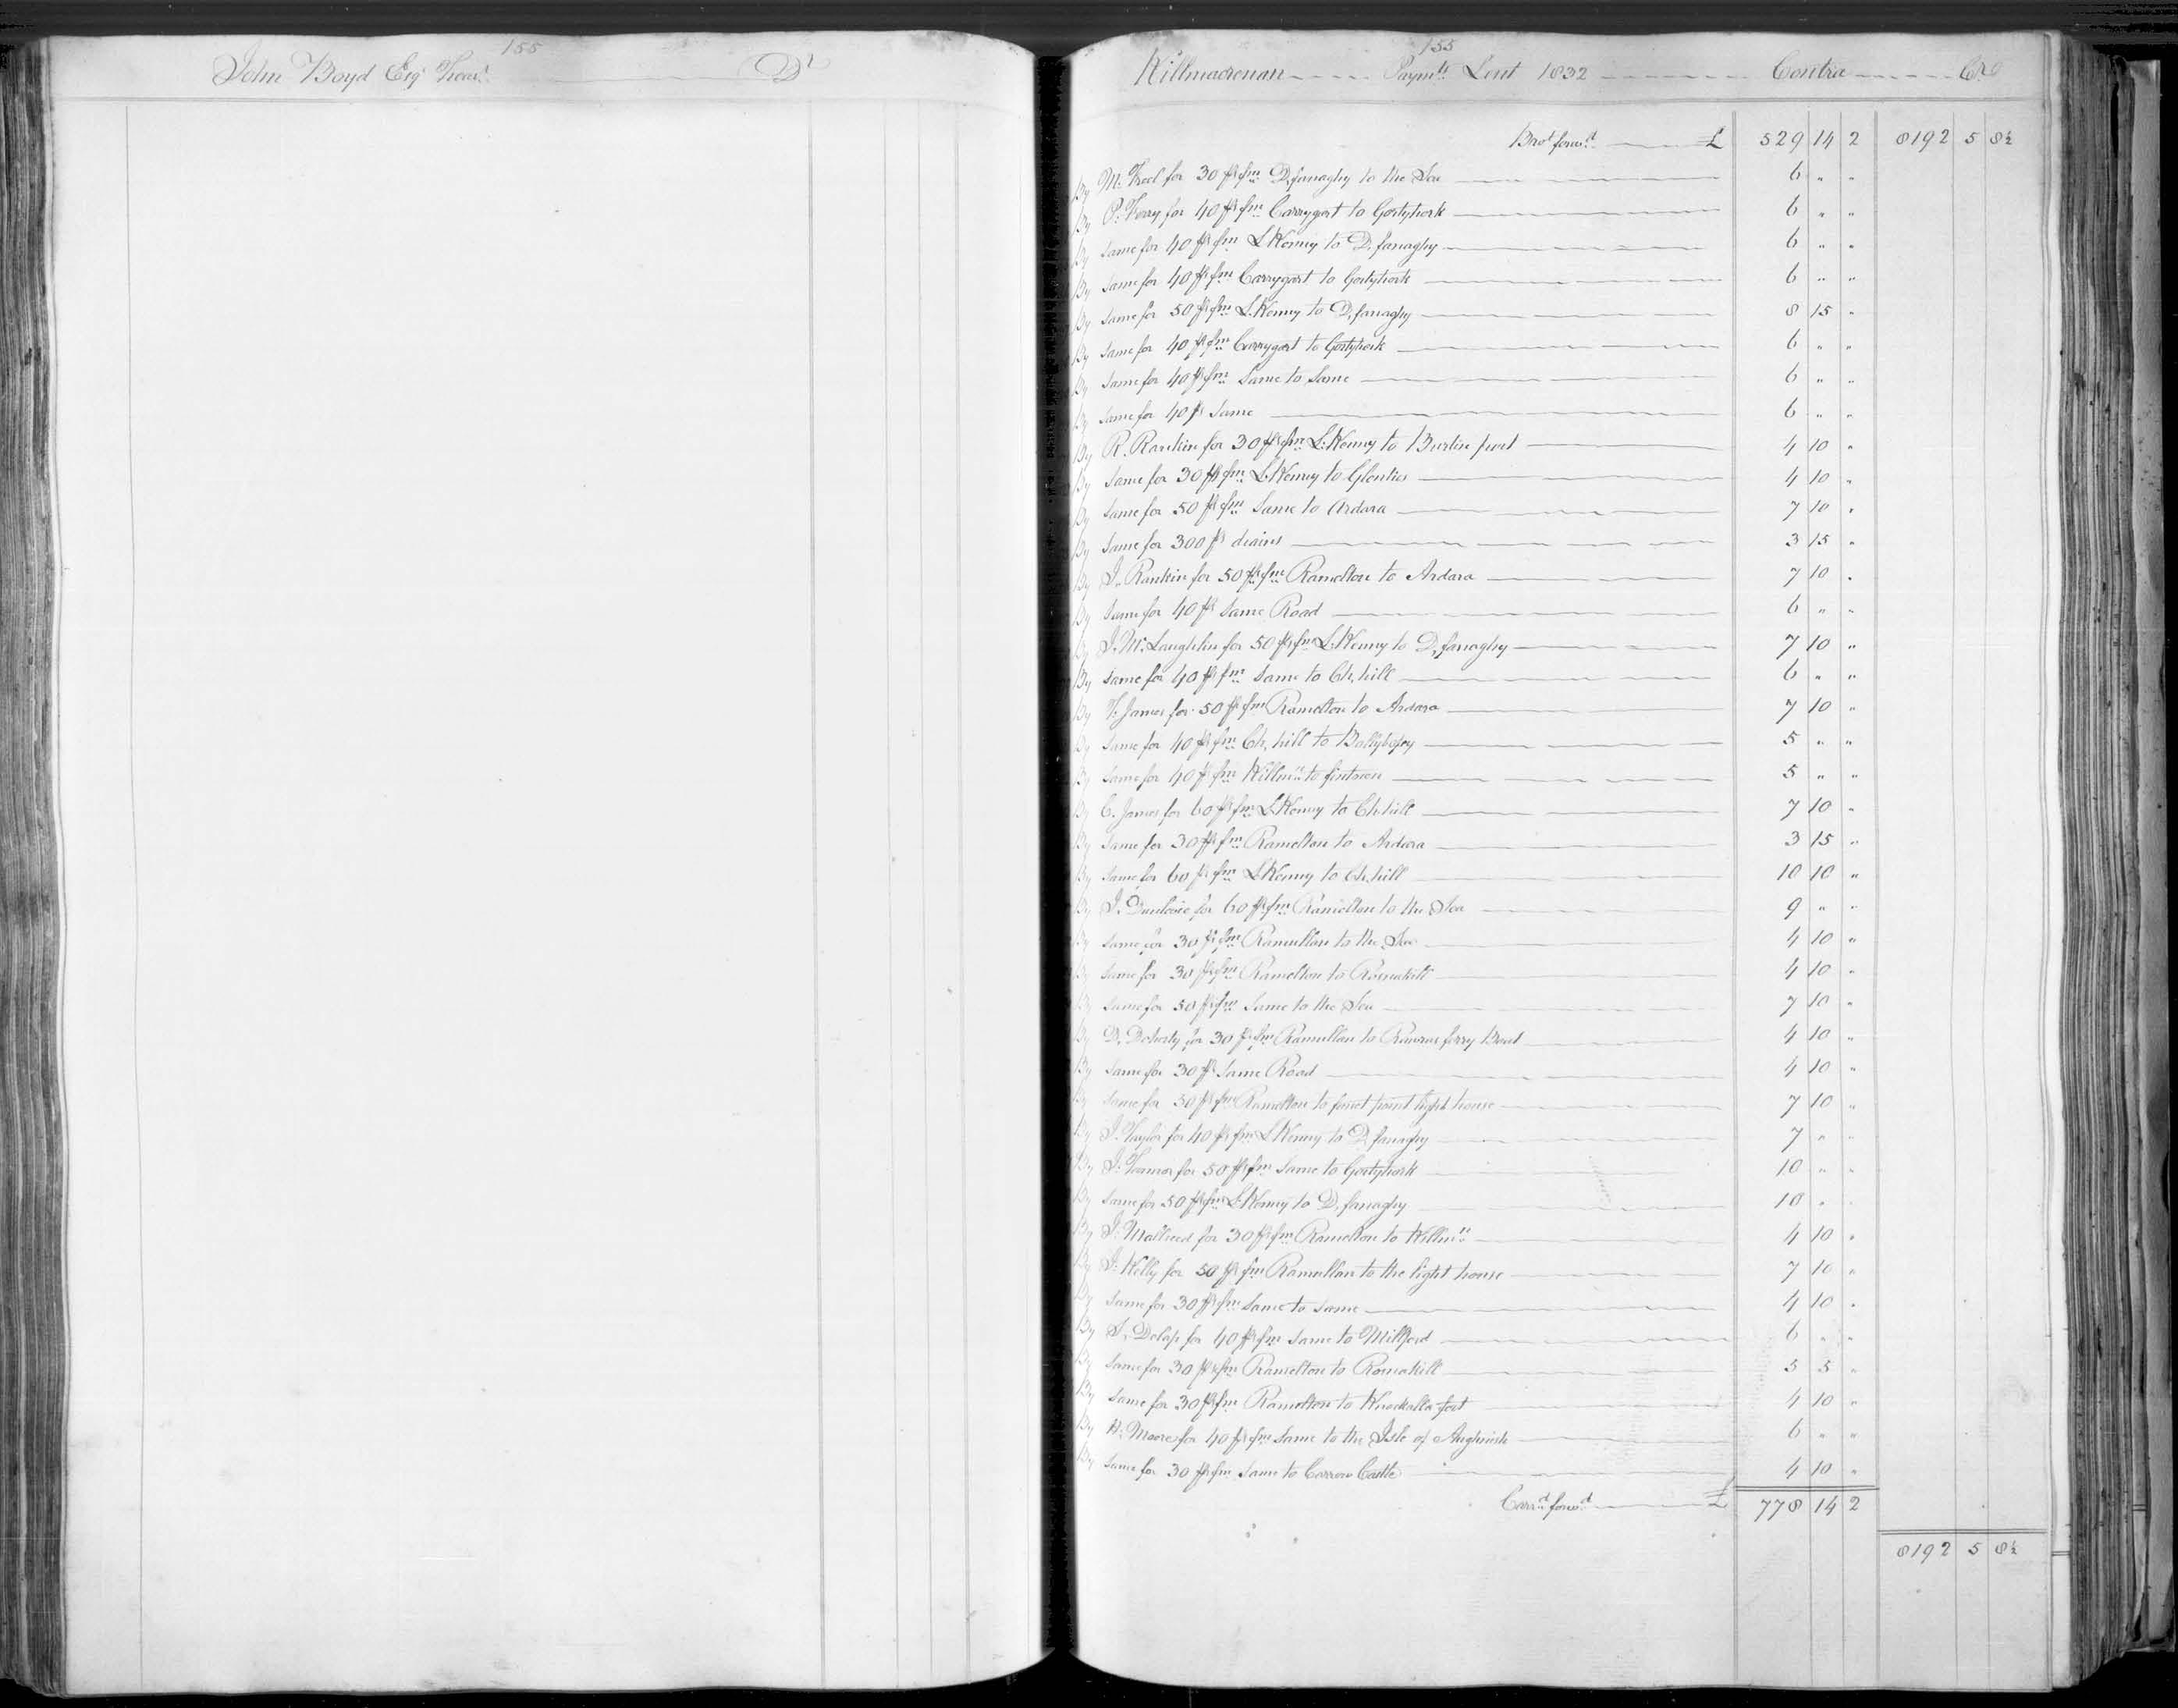 155
John Boyd Esqr Treasr Dr
155
Killmacrenan Paymts Lent 1832 Contra Cr
Brot forwd £ 529 14 2 8192 5 8½
By M. Freel for 30 ps fm D,fanaghy to the Sea 6 " "
By P. Ferry for 40 ps fm Carrygart to Gortyhork 6 " "
By Same for 40 ps fm L.Kenny to D,fanaghy 6 " "
By Same for 40 ps fm Carrygart to Gortyhork 6 " "
By Same for 50 ps fm L.Kenny to D,fanaghy 8 15 "
By Same for 40 ps fm Carrygart to Gortyhork 6 " "
By Same for 40 ps fm Same to Same 6 " "
By Same for 40 ps Same 6 " "
By R. Rankin for 30 ps fm L.Kenny to Burtin port 4 10 "
By Same for 30 ps fm L.Kenny to Glenties 4 10 "
By Same for 50 ps fm Same to Ardara 7 10 "
By Same for 300 ps drains 3 15 "
By J. Rankin for 50 ps fm Ramelton to Ardara 7 10 "
By Same for 40 ps Same Road 6 " "
By J. McLaughlin for 50 ps fm L.Kenny to D,fanaghy 7 10 "
By Same for 40 ps fm Same to Ch,hill 6 " "
By James for 50 ps fm Ramelton to Ardara 7 10 "
By Same for 40 ps fm Ch,hill to Ballybofey 5 " "
By Same for 40 ps fm Killmn to fintown 5 " "
By C. James for 60 ps fm L.Kenny to Ch,hill 7 10 "
By Same for 30 ps fm Ramelton to Ardara 3 15 "
By Same for 60 ps fm L.Kenny to Ch,hill 10 10 "
By J. Dunlevie for 60 ps fm Ramelton to the Sea 9 " "
By Same for 30 ps fm Ramullan to the Sea 4 10 "
By Same for 30 ps fm Ramelton to Rosnakill 4 10 "
By Same for 50 ps fm Same to the Sea 7 10 "
By D. Doherty for 30 ps fm Ramullan to Rawros ferry Boat 4 10 "
By Same for 30 ps Same Road 4 10 "
By Same for 50 ps fm Ramelton to fanet point light house 7 10 "
By J. Taylor for 40 ps fm L.Kenny to D,fanaghy 7 " "
By J. for 50 ps fm Same to Gortyhork 10 " "
By Same for 50 ps fm L.Kenny to D,fanaghy 10 " "
By J. for 30 ps fm Ramelton to Killmn 4 10 "
By J. Kelly for 50 ps fm Ramullan to the light house 7 10 "
By Same for 30 ps fm Same to Same 4 10 "
By S. Delap for 40 ps fm Same to Millford 6 " "
By Same for 30 ps fm Ramelton to Rosnakill 5 5 "
By Same for 30 ps fm Ramelton to Knockalla fort 4 10 "
By Moore for 40 ps fm Same to the Isle of Aughnish 6 " "
By Same for 30 ps fm Same to Carrow Castle 4 10 "
Carrd forwd £ 778 14 2
8192 5 8½